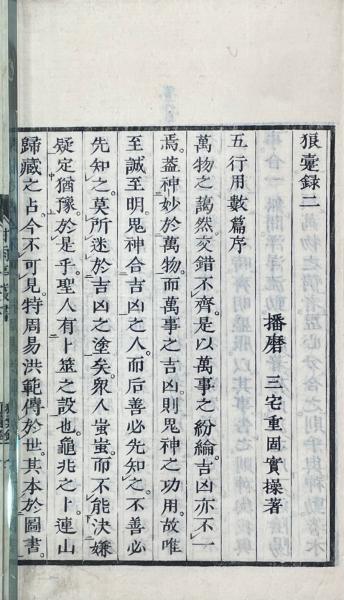 狼疐録二
播磨　三宅重固實操著
五行用數篇序
萬物之藹然交錯不齊是以萬事之紛綸吉凶亦不一
焉蓋神妙於萬物而萬事之吉凶則鬼神之功用故唯
至誠至明鬼神合吉凶之人而后善必先知之不善必
先知之莫所迷於吉凶之塗矣衆人蚩蚩而不能決嫌
疑定猶豫於是乎聖人有卜筮之設也龜兆之卜連山
歸藏之占今不可見特周易洪範傳於世其本於圖書